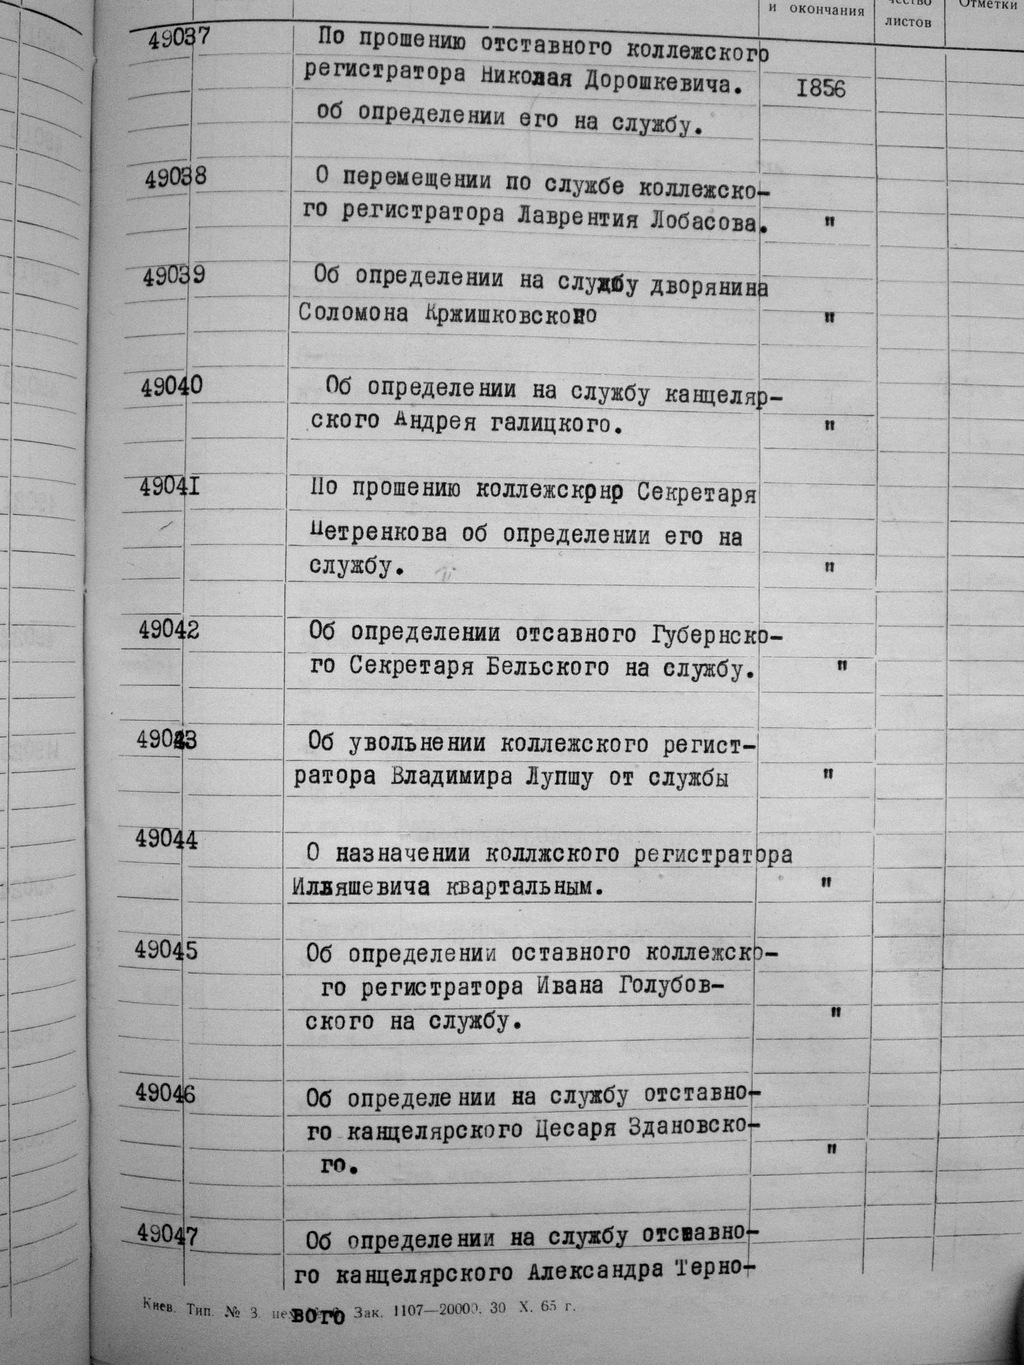 и окончания
листов
Отметки
49037
По прошению отставного коллежского
регистратора Николая Дорошкевича.
1856
об определении его на службу.
49038
О перемещении по службе коллежско-
го регистратора Лаврентия Лобасова.
"
49039
Об определении на службу дворянина
Соломона Кржишковского
"
49040
Об определении на службу канцеляр-
ского Андрея галицкого.
"
49041
По прошению коллежскрнр Секретаря
Петренкова об определении его на
службу.
"
49042
Об определении отсавного Губернско-
го Секретаря Бельского на службу.
"
49043
Об увольнении коллежского регист-
ратора Владимира Лупшу от службы
"
49044
О назначении коллжского регистратора
Илляшевича квартальным.
"
49045
Об определении оставного коллежско-
го регистратора Ивана Голубов-
ского на службу.
"
49046
Об определении на службу отставно-
го канцелярского Цесаря Здановско-
го.
"
49047
Об определении на службу отставно-
го канцелярского Александра Терно-
вого
Киев. Тип. № 3. Зак. 1107—20000. 30 X. 65 г.